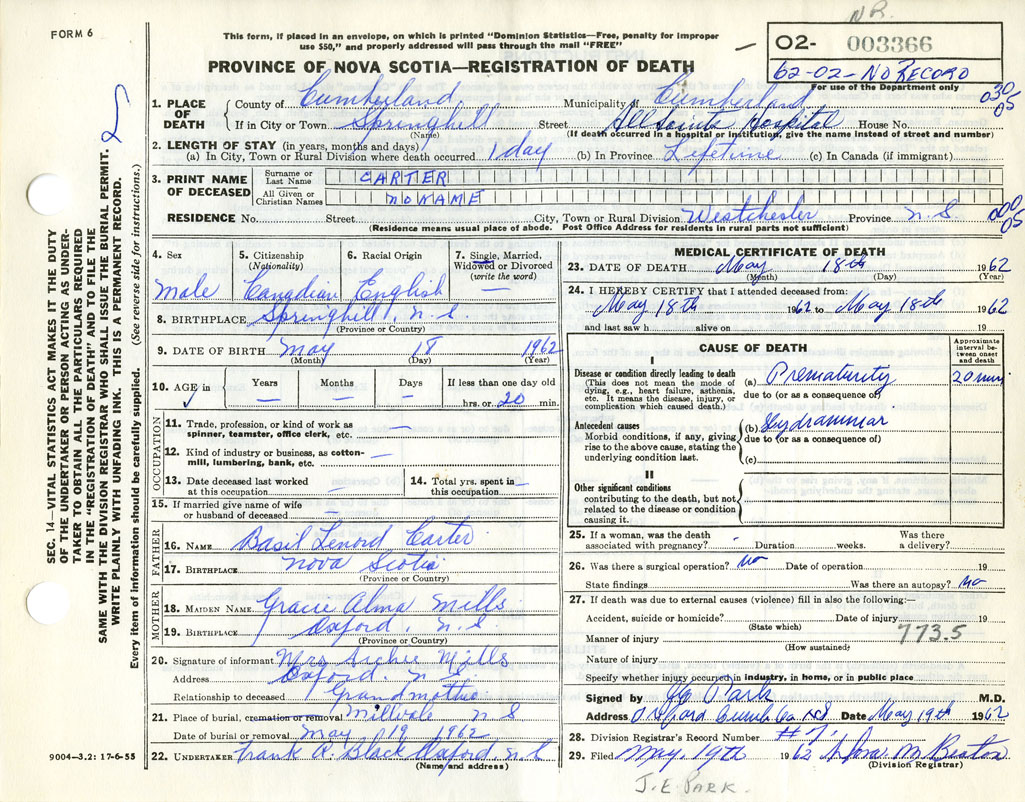 NR.
FORM 6
This form, if placed in an envelope, on which is printed "Dominion Statistics—Free, penalty for improper
use $50," and properly addressed will pass through the mail "FREE"
02- 003366
62-02-NO RECORD
For use of the Department only
PROVINCE OF NOVA SCOTIA—REGISTRATION OF DEATH
030
05
1. PLACE OF DEATH
County of Cumberland Municipality of Cumberland
If in City or Town Springhill Street All Saints Hospital House No.
(Name) (If death occurred in a hospital or institution, give name instead of street and number)
2. LENGTH OF STAY (in years, months and days)
(a) In City, Town or Rural Division where death occurred 1 day (b) In Province Lifetime (c) In Canada (if immigrant)
3. PRINT NAME OF DECEASED
Surname or Last Name CARTER
All Given or Christian Names NO NAME
RESIDENCE No. Street City, Town or Rural Division Westchester Province N.S. 000
05
(Residence means usual place of abode. Post Office Address for residents in rural parts not sufficient)
4. Sex 5. Citizenship (Nationality) 6. Racial Origin 7. Single, Married, Widowed or Divorced (write the word)
Male Canadian English —
8. BIRTHPLACE Springhill, N.S.
(Province or Country)
9. DATE OF BIRTH May 18 1962
(Month) (Day) (Year)
10. AGE in Years Months Days If less than one day old
— — — hrs. or 20 min.
OCCUPATION
11. Trade, profession, or kind of work as spinner, teamster, office clerk, etc. —
12. Kind of industry or business, as cotton-mill, lumbering, bank, etc. —
13. Date deceased last worked at this occupation — 14. Total yrs. spent in this occupation —
15. If married give name of wife or husband of deceased —
FATHER
16. NAME Basil Lenord Carter
17. BIRTHPLACE Nova Scotia
(Province or Country)
MOTHER
18. MAIDEN NAME Gracie Alma Mills
19. BIRTHPLACE Oxford, N.S.
(Province or Country)
20. Signature of informant Mrs Archie Mills
Address Oxford, N.S.
Relationship to deceased Grandmother
21. Place of burial, cremation or removal Millvale N S
Date of burial or removal May 19, 1962
22. UNDERTAKER Frank R. Black Oxford, N.S
(Name and address)
MEDICAL CERTIFICATE OF DEATH
23. DATE OF DEATH May 18th 1962
(Month) (Day) (Year)
24. I HEREBY CERTIFY that I attended deceased from:
May 18th 1962 to May 18th 1962
and last saw h alive on 19
CAUSE OF DEATH
Approximate interval between onset and death
I
Disease or condition directly leading to death
(This does not mean the mode of dying, e.g., heart failure, asthenia, etc. It means the disease, injury, or complication which caused death.)
(a) Prematurity 20 min
due to (or as a consequence of)
Antecedent causes
Morbid conditions, if any, giving rise to the above cause, stating the underlying condition last.
(b)
due to (or as a consequence of)
(c)
II
Other significant conditions
contributing to the death, but not related to the disease or condition causing it.
25. If a woman, was the death associated with pregnancy? - Duration weeks. Was there a delivery?
26. Was there a surgical operation? No Date of operation 19
State findings Was there an autopsy? No
27. If death was due to external causes (violence) fill in also the following:—
Accident, suicide or homicide? Date of injury 19
(State which)
773.5
Manner of injury
(How sustained)
Nature of injury
Specify whether injury occurred in industry, in home, or in public place
Signed by J E Park M.D.
Address Oxford Cumb Co NS Date May 19th 1962
28. Division Registrar's Record Number #7.
29. Filed May, 19th 1962 M. Beaton
(Division Registrar)
J.E PARK.
9004—3,2: 17-6-55
SEC. 14—VITAL STATISTICS ACT MAKES IT THE DUTY
OF THE UNDERTAKER OR PERSON ACTING AS UNDER-
TAKER TO OBTAIN ALL THE PARTICULARS REQUIRED
IN THE "REGISTRATION OF DEATH" AND TO FILE THE
SAME WITH THE DIVISION REGISTRAR WHO SHALL ISSUE THE BURIAL PERMIT.
WRITE PLAINLY WITH UNFADING INK. THIS IS A PERMANENT RECORD.
Every item of information should be carefully supplied. (See reverse side for instructions.)